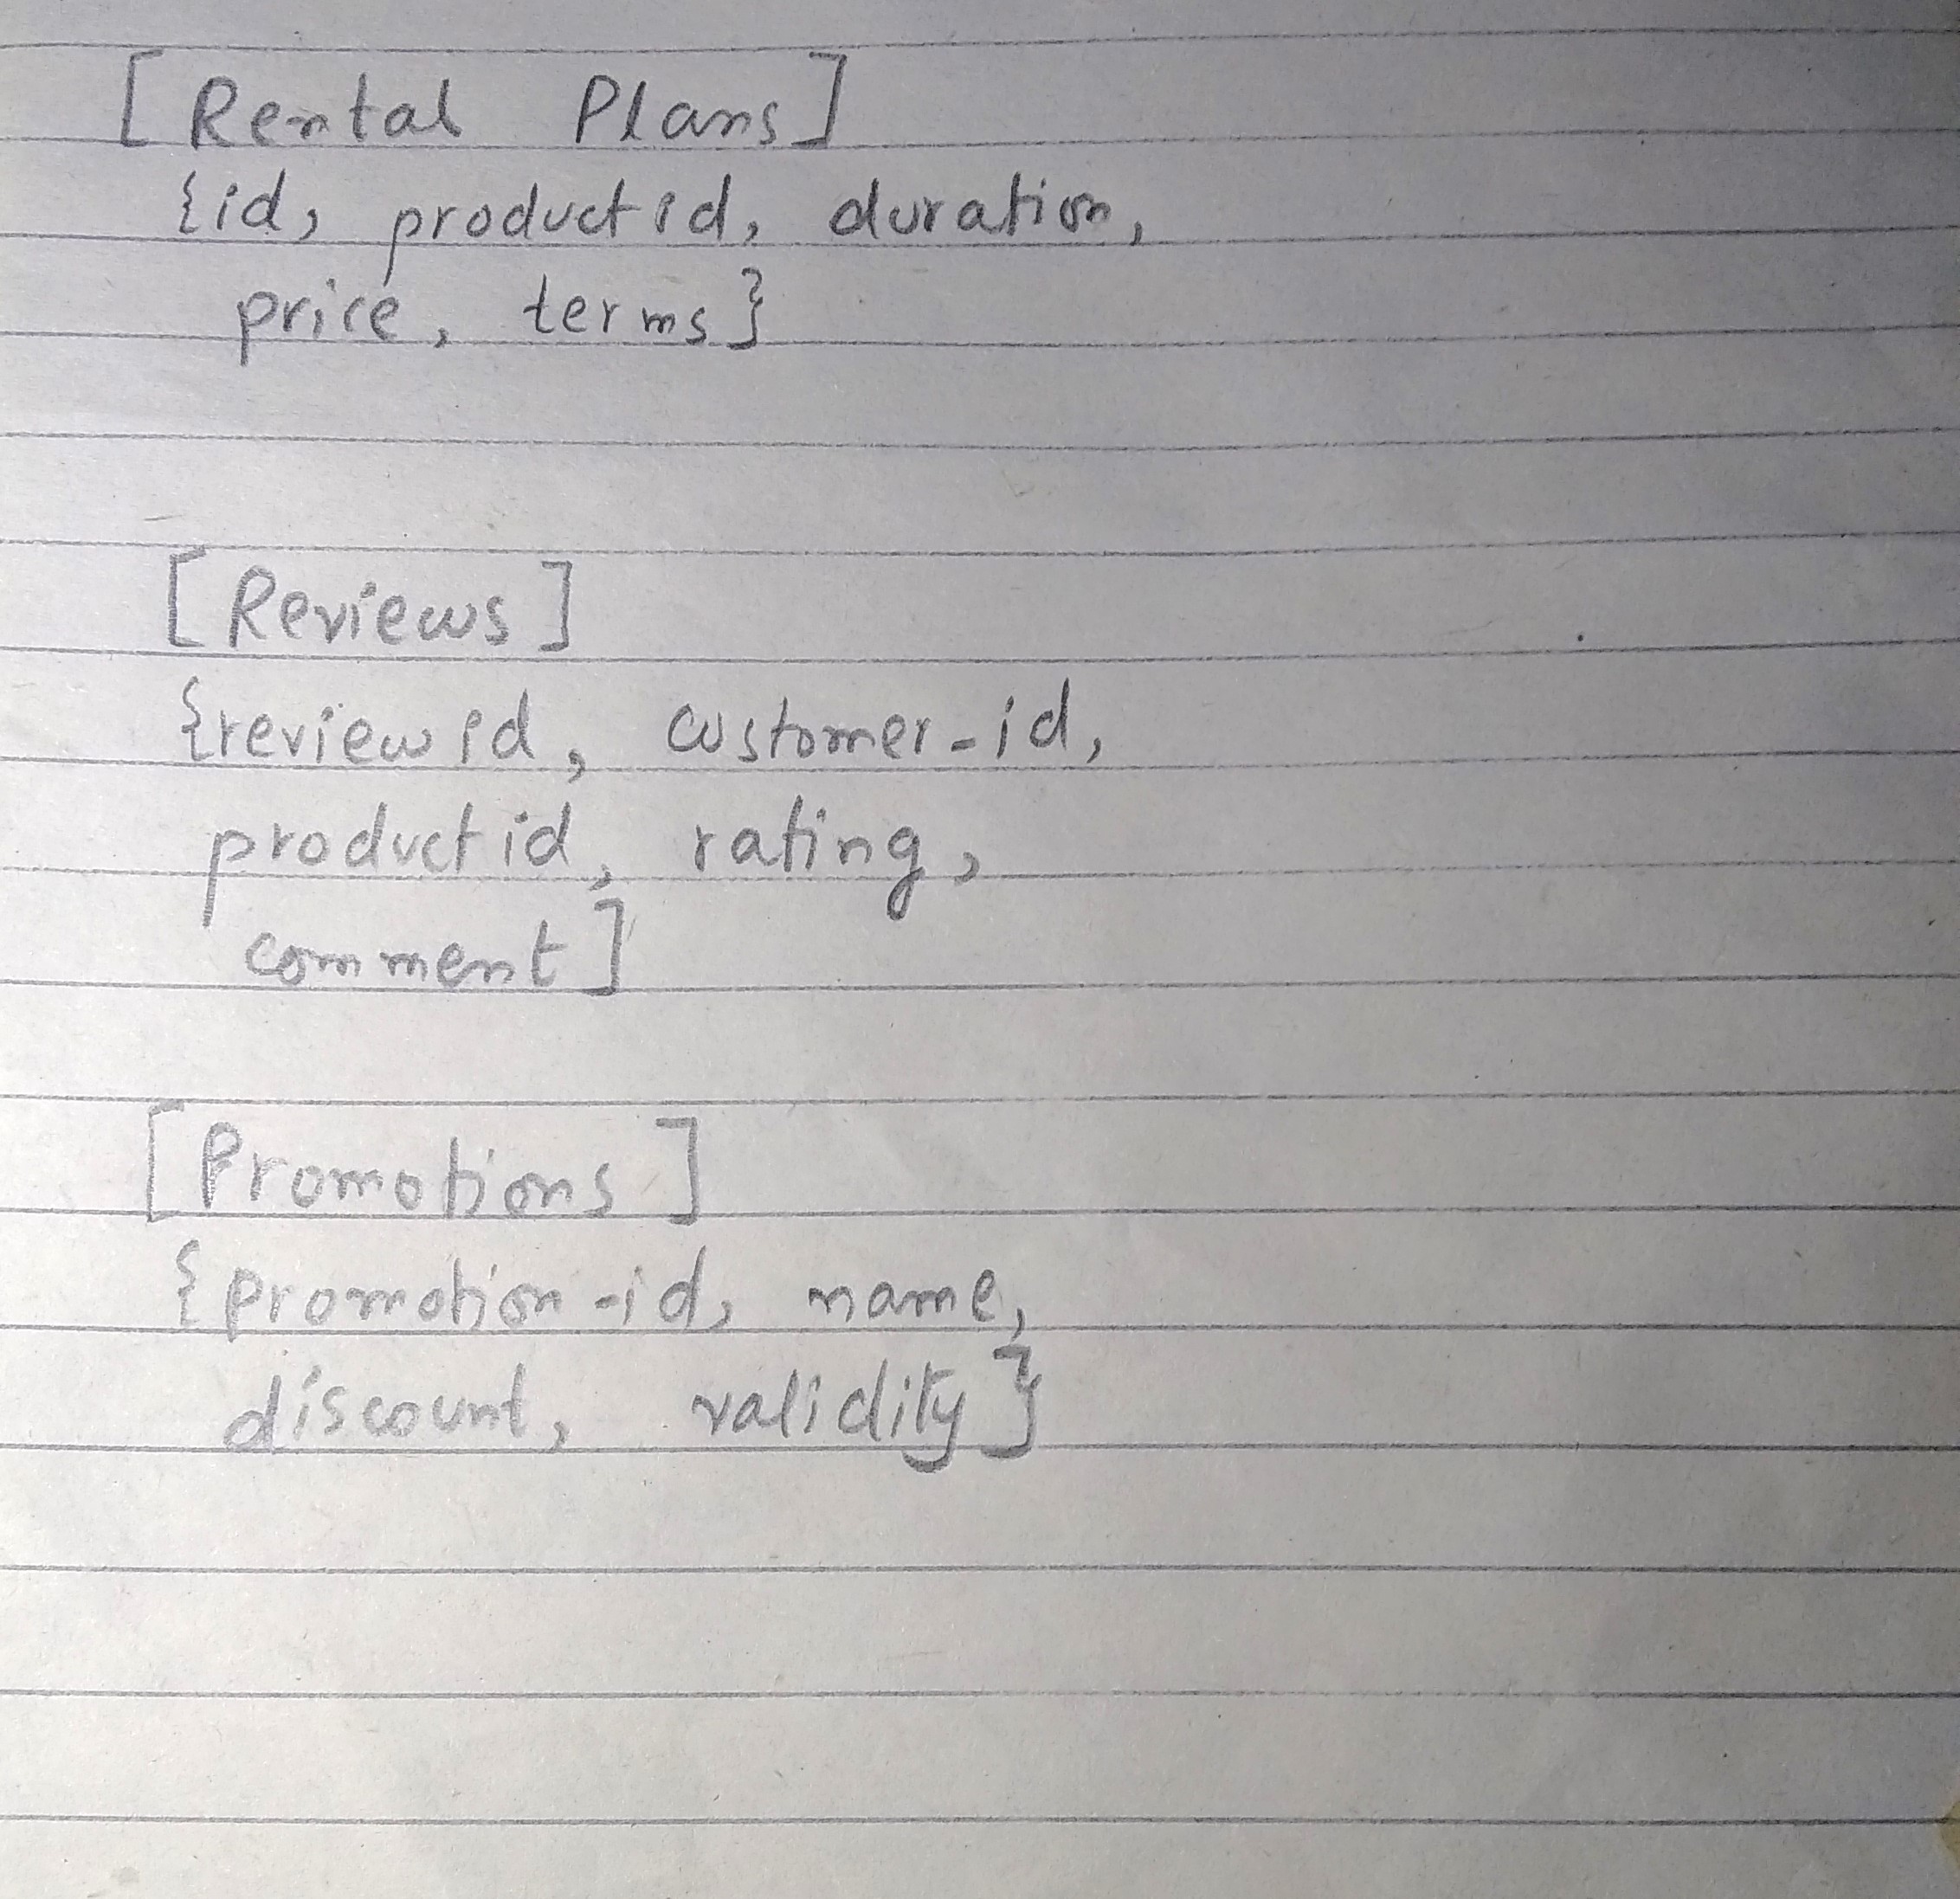 [Rental Plans]
{id, productid, duration,
price, terms}
[Reviews]
{reviewid, customer-id,
productid, rating,
comment]
[Promotions]
{promotion-id, name,
discount, validity}